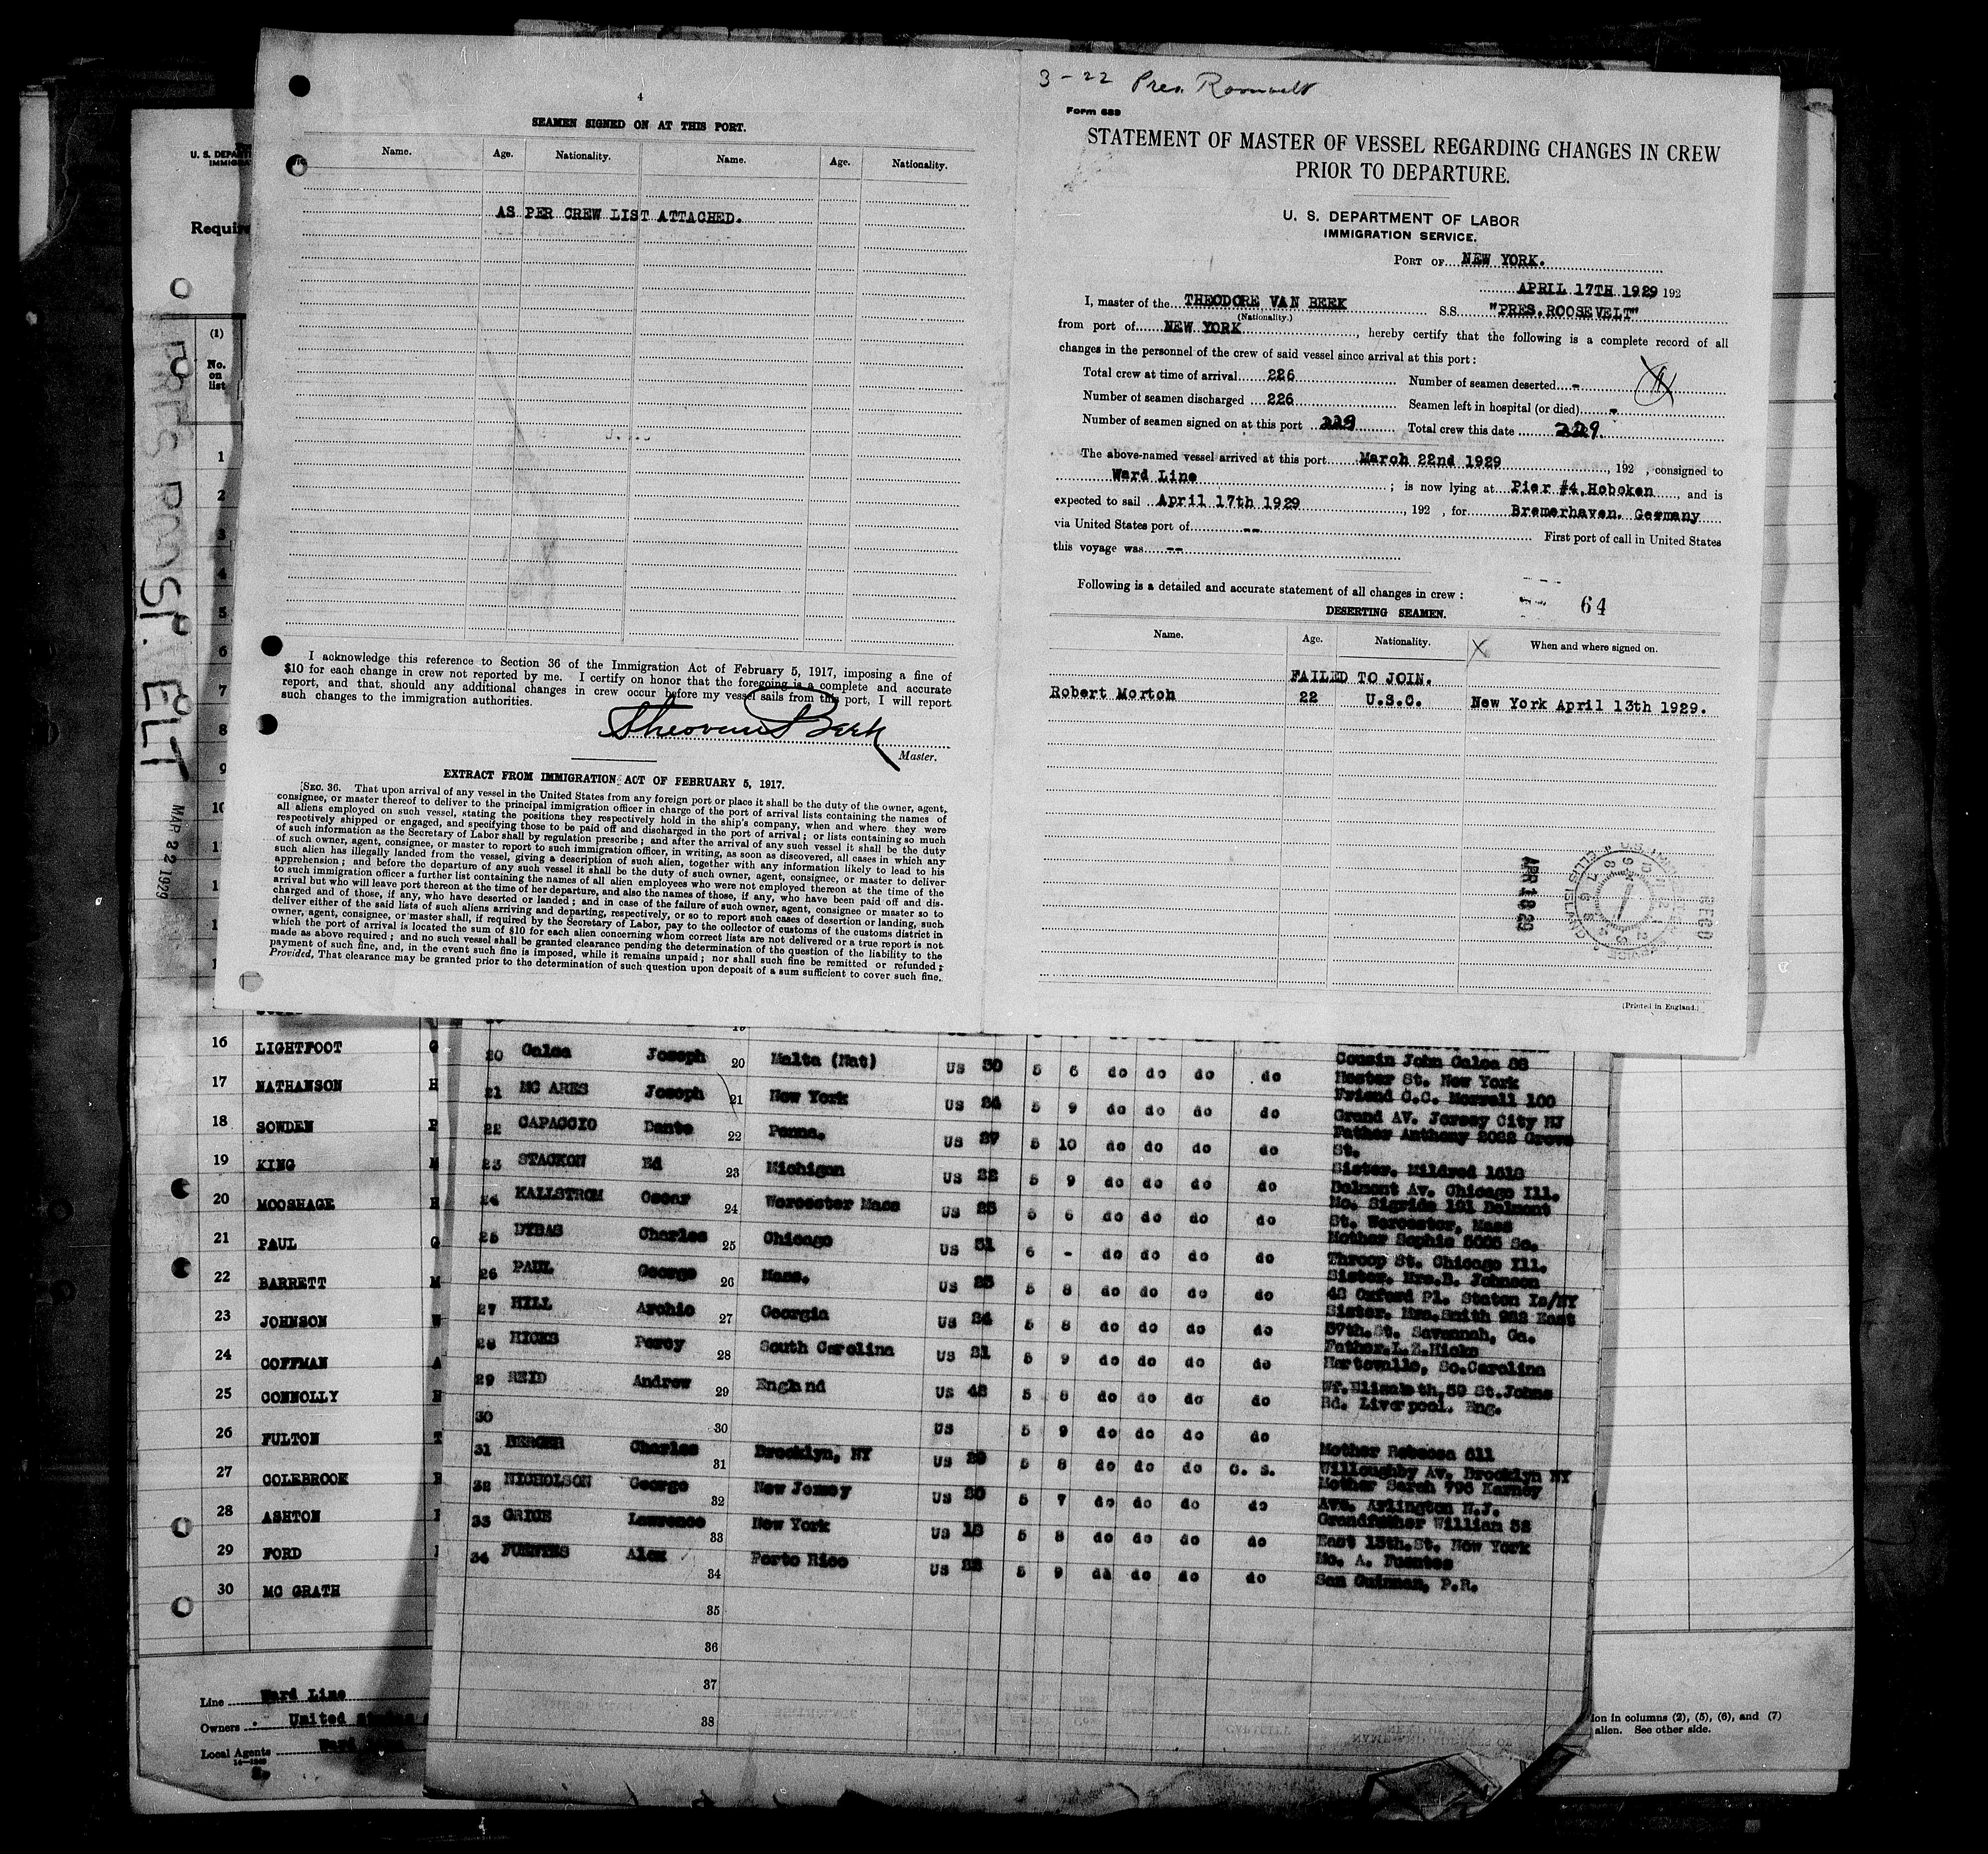 4
SEAMEN SIGNED ON AT THIS PORT.
Name. Age. Nationality. Name. Age. Nationality.
AS PER CREW LIST ATTACHED.
I acknowledge this reference to Section 36 of the Immigration Act of February 5, 1917, imposing a fine of
$10 for each change in crew not reported by me. I certify on honor that the foregoing is a complete and accurate
report, and that, should any additional changes in crew occur before my vessel sails from this port, I will report
such changes to the immigration authorities.
Master.
EXTRACT FROM IMMIGRATION ACT OF FEBRUARY 5, 1917.
SEC. 36. That upon arrival of any vessel in the United States from any foreign port or place it shall be the duty of the owner, agent,
consignee, or master thereof to deliver to the principal immigration officer in charge of the port of arrival lists containing the names of
all aliens employed on such vessel, stating the positions they respectively hold in the ship's company, when and where they were
respectively shipped or engaged, and specifying those to be paid off and discharged in the port of arrival; or lists containing so much
of such information as the Secretary of Labor shall by regulation prescribe; and after the arrival of any such vessel it shall be the duty
of such owner, agent, consignee, or master to report to such immigration officer, in writing, as soon as discovered, all cases in which any
such alien has illegally landed from the vessel, giving a description of such alien, together with any information likely to lead to his
apprehension; and before the departure of any such vessel it shall be the duty of such owner, agent, consignee, or master to deliver
to such immigration officer a further list containing the names of all alien employees who were not employed thereon at the time of the
arrival but who will leave port thereon at the time of her departure, and also the names of those, if any, who have been paid off and dis-
charged and of those, if any, who have deserted or landed; and in case of the failure of such owner, agent, consignee or master so to
deliver either of the said lists of such aliens arriving and departing, respectively, or so to report such cases of desertion or landing, such
owner, agent, consignee, or master shall, if required by the Secretary of Labor, pay to the collector of customs of the customs district in
which the port of arrival is located the sum of $10 for each alien concerning whom correct lists are not delivered or a true report is not
made as above required; and no such vessel shall be granted clearance pending the determination of the question of the liability to the
payment of such fine, and, in the event such fine is imposed, while it remains unpaid; nor shall such fine be remitted or refunded:
Provided, That clearance may be granted prior to the determination of such question upon deposit of a sum sufficient to cover such fine.
3-22 Pres. Roosevelt
Form 689
STATEMENT OF MASTER OF VESSEL REGARDING CHANGES IN CREW
PRIOR TO DEPARTURE.
U. S. DEPARTMENT OF LABOR
IMMIGRATION SERVICE.
PORT OF NEW YORK.
APRIL 17TH 1929 192
I, master of the THEODORE VAN BEEK S.S. "PRES.ROOSEVELT"
(Nationality.)
from port of NEW YORK, hereby certify that the following is a complete record of all
changes in the personnel of the crew of said vessel since arrival at this port:
Total crew at time of arrival 226 Number of seamen deserted -
Number of seamen discharged 226 Seamen left in hospital (or died) -
Number of seamen signed on at this port 229 Total crew this date 229.
The above-named vessel arrived at this port March 22nd 1929, 192 , consigned to
Ward Line; is now lying at Pier #4, Hoboken, and is
expected to sail April 17th 1929, 192 , for Bremerhaven. Germany
via United States port of -- First port of call in United States
this voyage was --
Following is a detailed and accurate statement of all changes in crew:
64
DESERTING SEAMEN.
Name. Age. Nationality. When and where signed on.
FAILED TO JOIN.
Robert Morton 22 U.S.C. New York April 13th 1929.
APR 18 29
(Printed in England.)
U. S. DEPART
Require
(1)
No.
on
list
1
2
3
4
5
6
7
8
9
10
MAR 22 1929
16 LIGHTFOOT G
17 NATHANSON H
18 SOWDEN P
19 KING M
20 MOOSHAGE H
21 PAUL G
22 BARRETT M
23 JOHNSON W
24 COFFMAN A
25 CONNOLLY H
26 FULTON T
27 COLEBROOK
28 ASHTON
29 FORD
30 MC GRATH
Line Ward Line
Owners United States
Local Agents Ward Line
20 Galea Joseph 20 Malta (Nat) US 30 5 6 do do do do Cousin John Galea 88
Hester St. New York
21 MC ARES Joseph 21 New York US 24 5 9 do do do do Friend C.C. Morrell 100
Grand AV. Jersey City NJ
22 CAPACCIO Dante 22 Penna. US 27 5 10 do do do do Father Anthony 2022 Grove
St.
23 STACKON Ed 23 Michigan US 22 5 9 do do do do Sister. Mildred 1618
Belmont Av. Chicago Ill.
24 KALLSTROM Oscar 24 Worcester Mass US 25 5 6 do do do do Mo. Sigrids 151 Belmont
St. Worcester, Mass
25 DYBAS Charles 25 Chicago US 31 6 - do do do do Mother Sophie 5025 So.
Throop St. Chicago Ill.
26 PAUL George 26 Mass. US 25 5 8 do do do do Sister. Mrs.B. Johnson
48 Oxford Pl. Staton Is/NY
27 HILL Archie 27 Georgia US 24 5 8 do do do do Sister. Mrs.Smith 922 East
37th.St. Savannah, Ga.
28 HICKS Percy 28 South Carolina US 31 5 9 do do do do Father.L.Z.Hicks
Hartsvalle, So.Carolina
29 REID Andrew 29 England US 48 5 8 do do do do Wf.Elizabeth,59 St.Johns
Rd. Liverpool. Eng.
30 30 US 5 9 do do do do
31 BERGER Charles 31 Brooklyn, NY US 29 5 8 do do do C. S. Mother Rebecca 611
Willoughby Av. Brooklyn NY
32 NICHOLSON George 32 New Jersey US 30 5 7 do do do do Mother Sarah 796 Karney
Ave. Arlington N.J.
33 GRICE Lawrence 33 New York US 18 5 8 do do do do Grandfather William 52
East 13th.St. New York
34 FUENTES Alex 34 Porto Rico US 22 5 9 do do do do Mo. A. Fuentes
San Guinnan, P.R.
35
36
37
38
ion in columns (2), (5), (6), and (7)
alien. See other side.